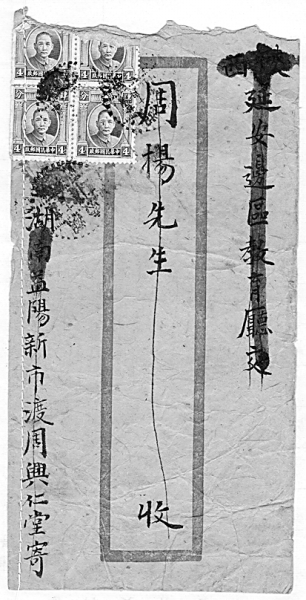 延安邊區教育廳交
周楊先生 收
湖南益陽新市渡周興仁堂寄